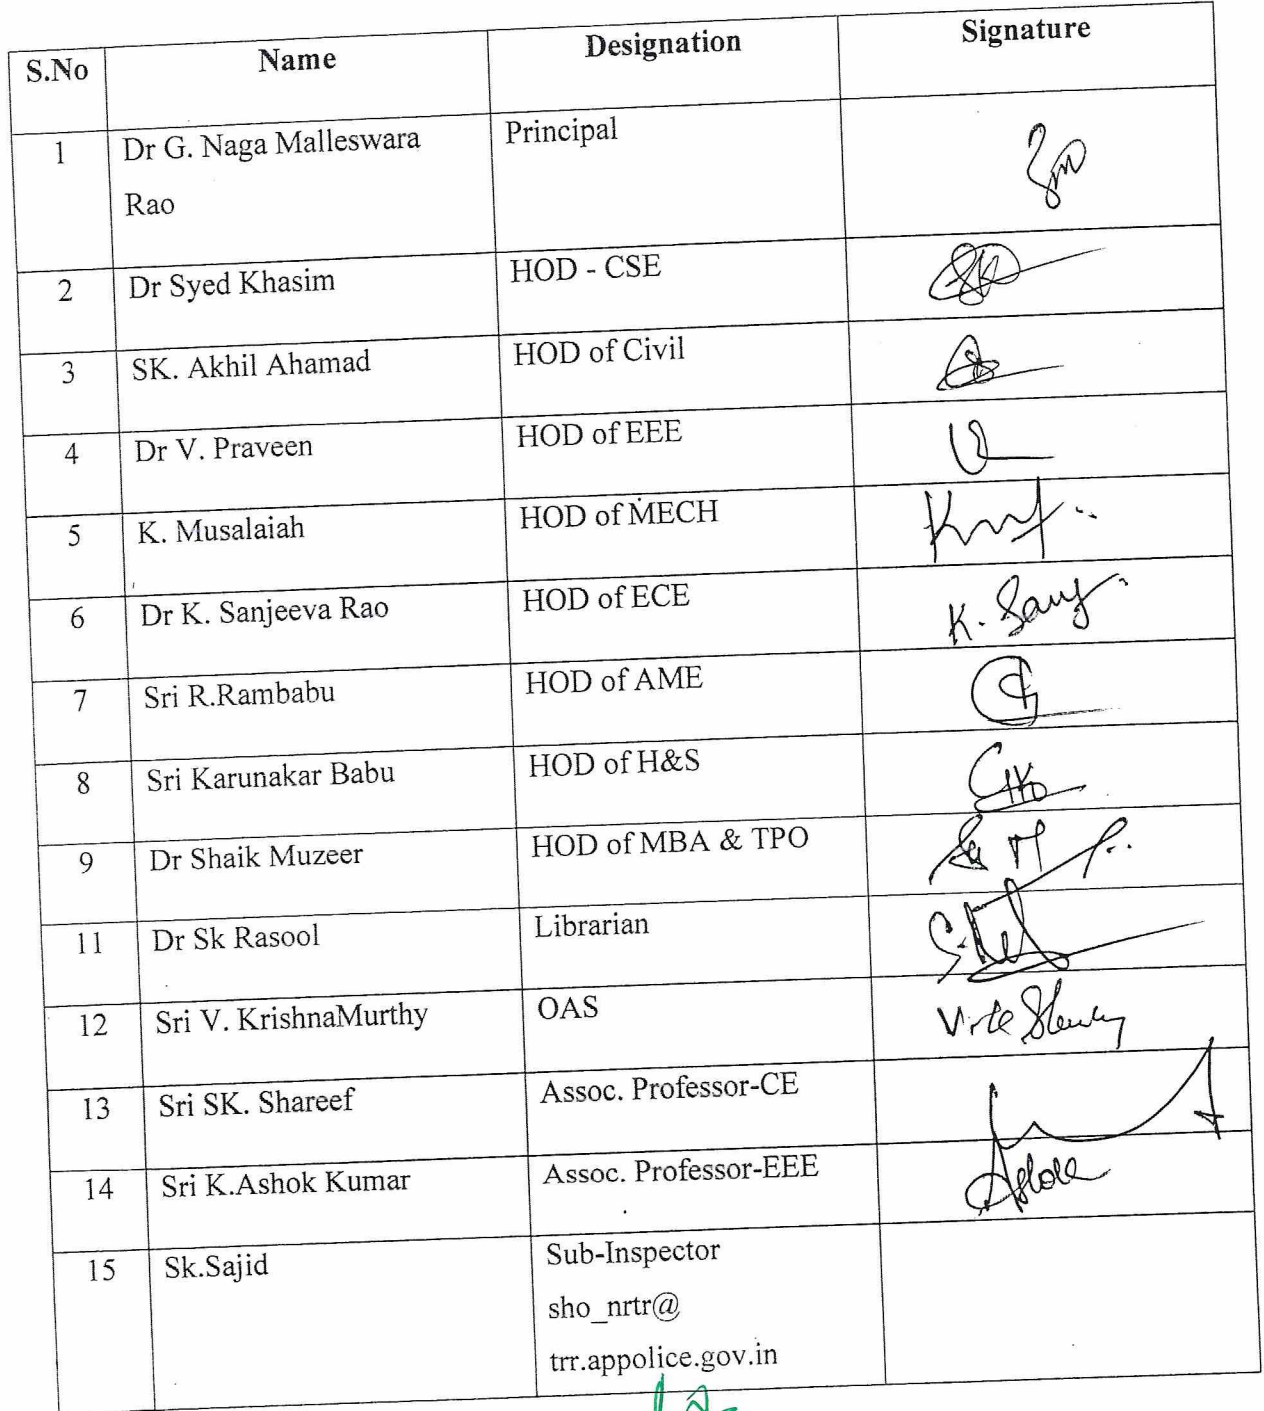 S.No Name Designation Signature
1 Dr G. Naga Malleswara Principal
Rao
2 Dr Syed Khasim HOD - CSE
3 SK. Akhil Ahamad HOD of Civil
4 Dr V. Praveen HOD of EEE
5 K. Musalaiah HOD of MECH
6 Dr K. Sanjeeva Rao HOD of ECE
7 Sri R.Rambabu HOD of AME
8 Sri Karunakar Babu HOD of H&S
9 Dr Shaik Muzeer HOD of MBA & TPO
11 Dr Sk Rasool Librarian
12 Sri V. KrishnaMurthy OAS
13 Sri SK. Shareef Assoc. Professor-CE
14 Sri K.Ashok Kumar Assoc. Professor-EEE
15 Sk.Sajid Sub-Inspector
sho_nrtr@
trr.appolice.gov.in